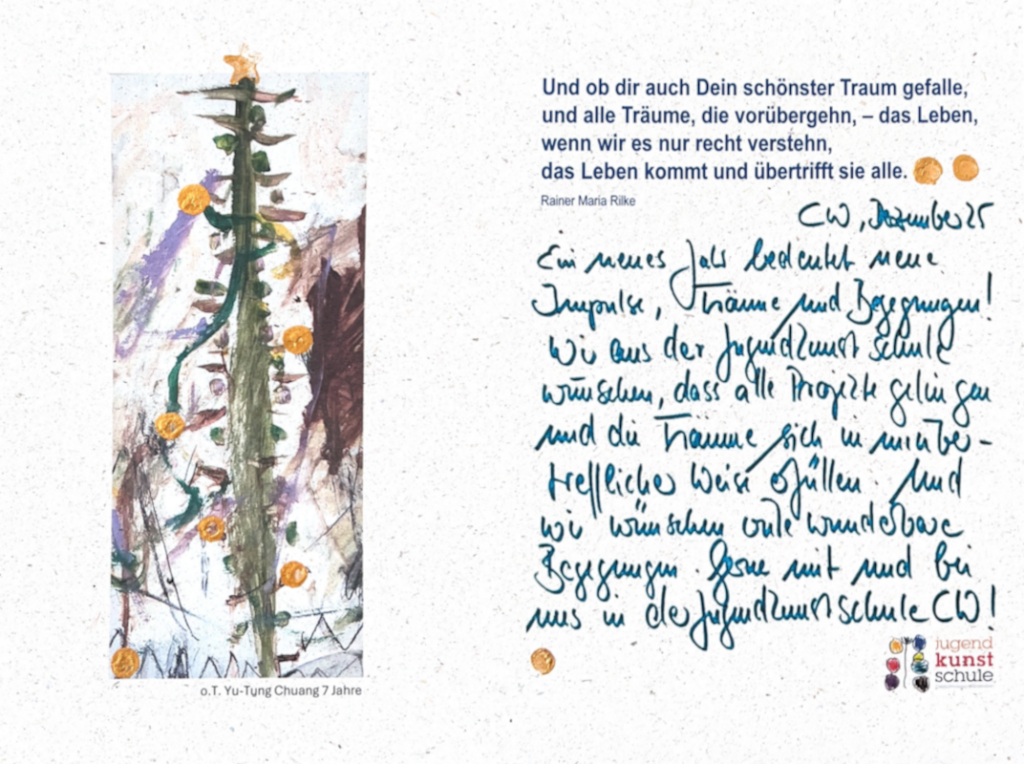 Und ob dir auch Dein schönster Traum gefalle,
und alle Träume, die vorübergehn, – das Leben,
wenn wir es nur recht verstehn,
das Leben kommt und übertrifft sie alle.
Rainer Maria Rilke
CW, Dezember 25
Ein neues Jahr bedeutet neue
Impulse, Träume und Begegnungen!
Wir aus der Jugendkunstschule
wünschen, dass alle Projekte gelingen
und die Träume sich in unüber-
trefflicher Weise erfüllen. Und
wir wünschen viele wunderbare
Begegnungen. Gerne mit und bei
uns in der Jugendkunstschule CW!
jugend
kunst
schule
o.T. Yu-Tung Chuang 7 Jahre